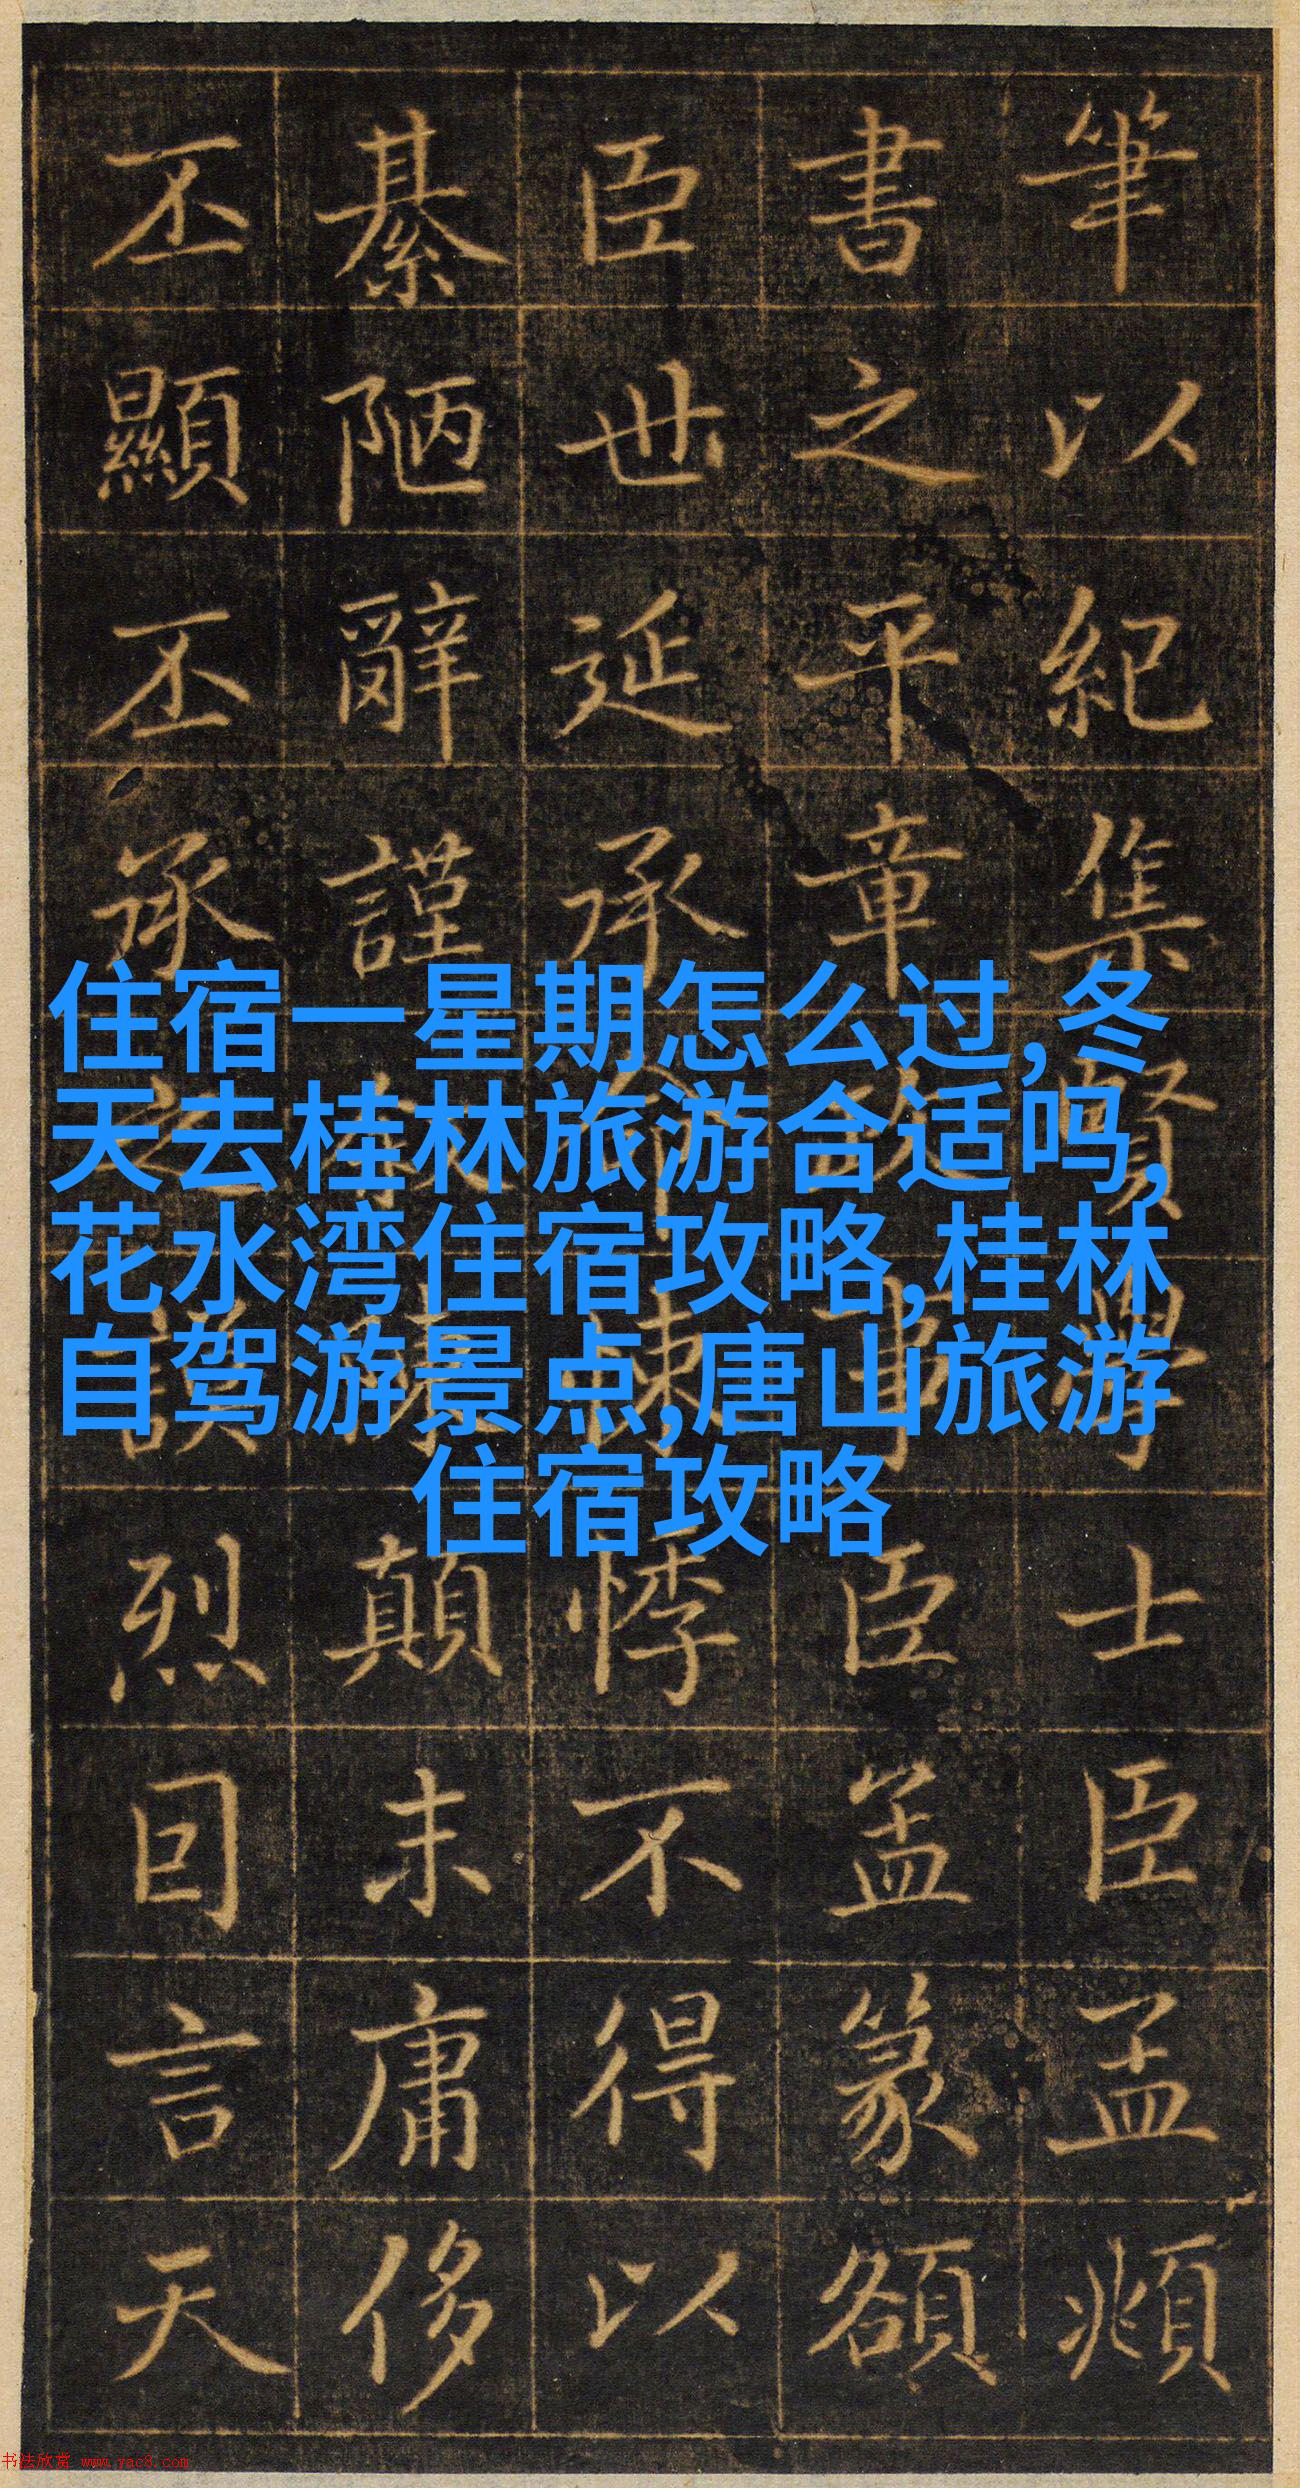 筆以紀集賢學士臣孟頫
書之平章政事臣篆額
臣世延承命悚悸不得以
綦陋辭謹顛末庸侈
丕顯丕承之謨烈囙言天
住宿一星期怎么过,冬
天去桂林旅游合适吗,
花水湾住宿攻略,桂林
自驾游景点,唐山旅游
住宿攻略
书法欣赏 www.yac8.com